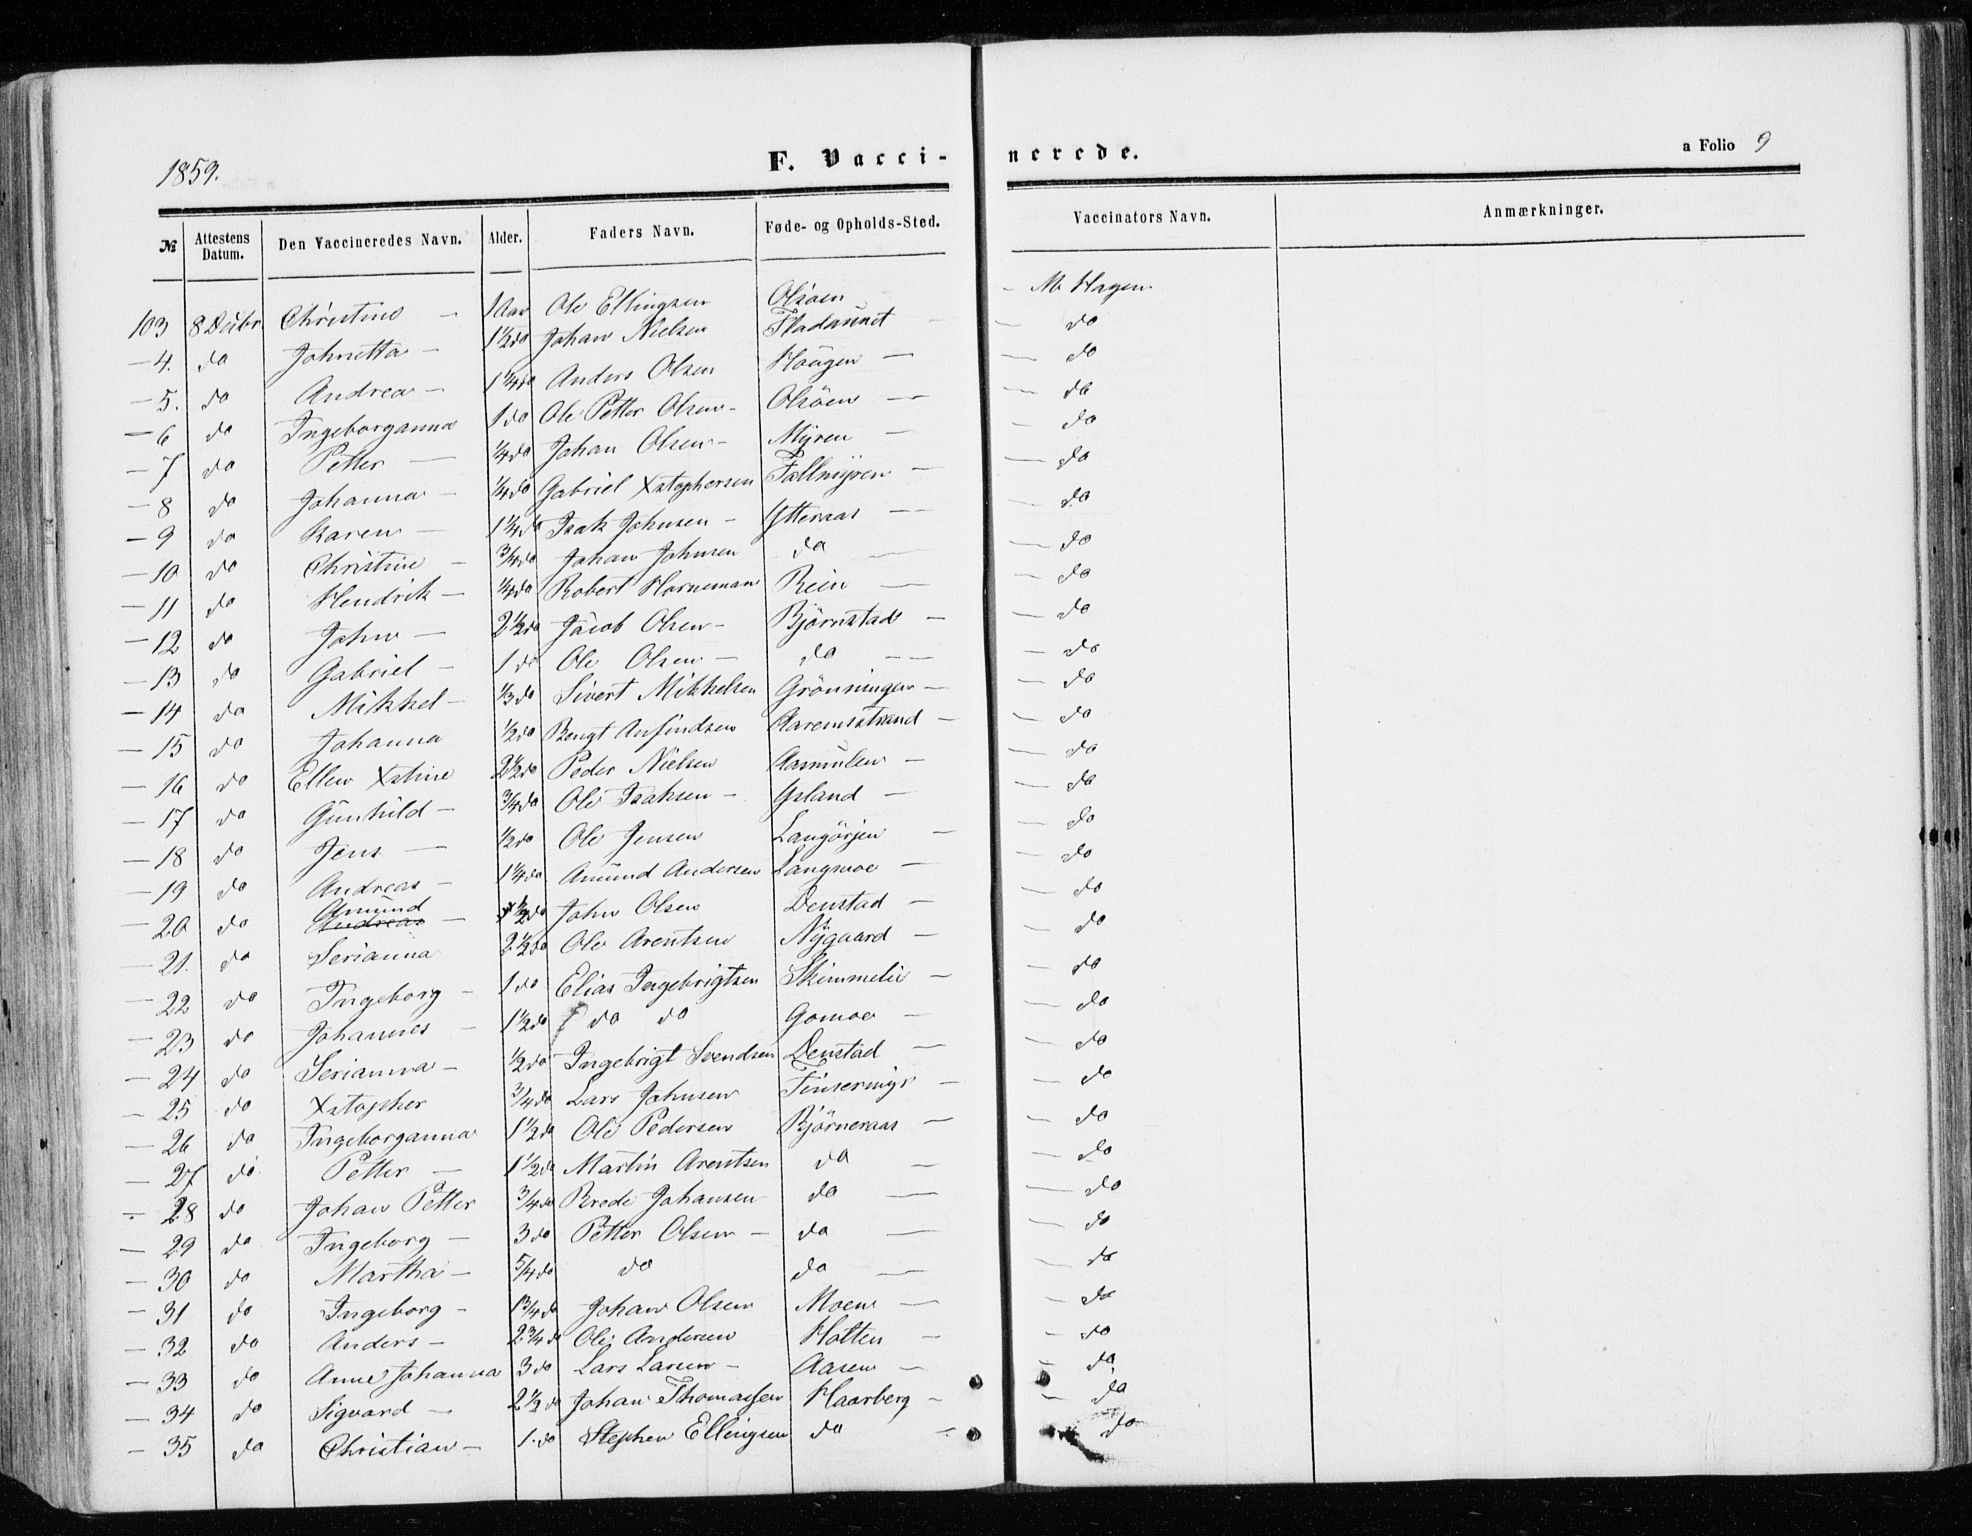 1859.
F. Vacci-
nerede.
a Folio 9
№ Attestens Datum. Den Vaccineredes Navn. Alder. Faders Navn. Føde- og Opholds-Sted. Vaccinators Navn. Anmærkninger.
103 8 Decbr Christine - 1 Aar Ole Ellingsen Olsøen - M. Hagen
- 4. do Johnetta - 1½ do Johan Nielsen Fladaunet - do
- 5. do Andrea - 1¼ do Anders Olsen Haugen - - do
- 6 do Ingeborganna 1 do Ole Petter Olsen - Olsøen - - do
- 7 do Petter - ¼ do Johan Olsen - Myren - - do
- 8 do Johanna - ¼ do Gabriel Xstophersen Fallmyren - - do
- 9 do Karen - 1¼ do Isak Johnsen - Ytteraas - - do
- 10 do Christine - ¾ do Johan Johnsen do - - do
- 11 do Hendrik - ¼ do Robert Horneman Rein - - do
- 12 do John - 2½ do Jacob Olsen - Bjørnstad - - do
- 13 do Gabriel - 1 do Ole Olsen - do - - do
- 14 do Mikkel - ⅓ do Sivert Mikkelsen Grønningen - - do
- 15 do Johanna ½ do Bengt Arnfindsen Aaremsstrand - - do
- 16 do Ellen Xstine 2½ do Peder Nielsen Aarmulen - - do
- 17 do Gunhild - ¾ do Ole Isaksen - Ysland - - do
- 18 do Jens - ½ do Ole Jensen Langørjen - - do
- 19 do Andreas - 1¼ do Amund Andersen Langmoe - - do
- 20 do Amund Andreas - ½ do John Olsen Denstad - - do
- 21. do Serianna 2½ do Ole Arentsen Nygaard - - do
- 22 do Ingeborg - 1 do Elias Ingebrigtsen Skimmelie - - do
- 23 do Johannes - 1½ do do do Gomoe - - do
- 24 do Serianna - ½ do Ingebrigt Svendsen Denstad - - do
- 25 do Xstopher ¾ do Lars Johnsen Finsermyr - - do
- 26 do Ingeborganna 1½ do Ole Pedersen Bjørneraas - - do
- 27 do Petter - 1½ do Martin Arentsen do - - do
- 28 do Johan Petter ¾ do Brede Johansen do - - do
- 29 do Ingeborg - 3 do Petter Olsen - do - - do
- 30 do Martha - 5/4 do do do - - do
- 31 do Ingeborg - 1¾ do Johan Olsen Moen - - do
- 32 do Anders - 2¾ do Ole Andersen Holten - - do
- 33 do Anne Johanna 3 do Lars Larsen - Aasen - - do
- 34 do Sigvard - 2½ do Johan Thomassen Haarberg - - do
- 35 do Christian - 1 do Stephen Ellingsen do - do